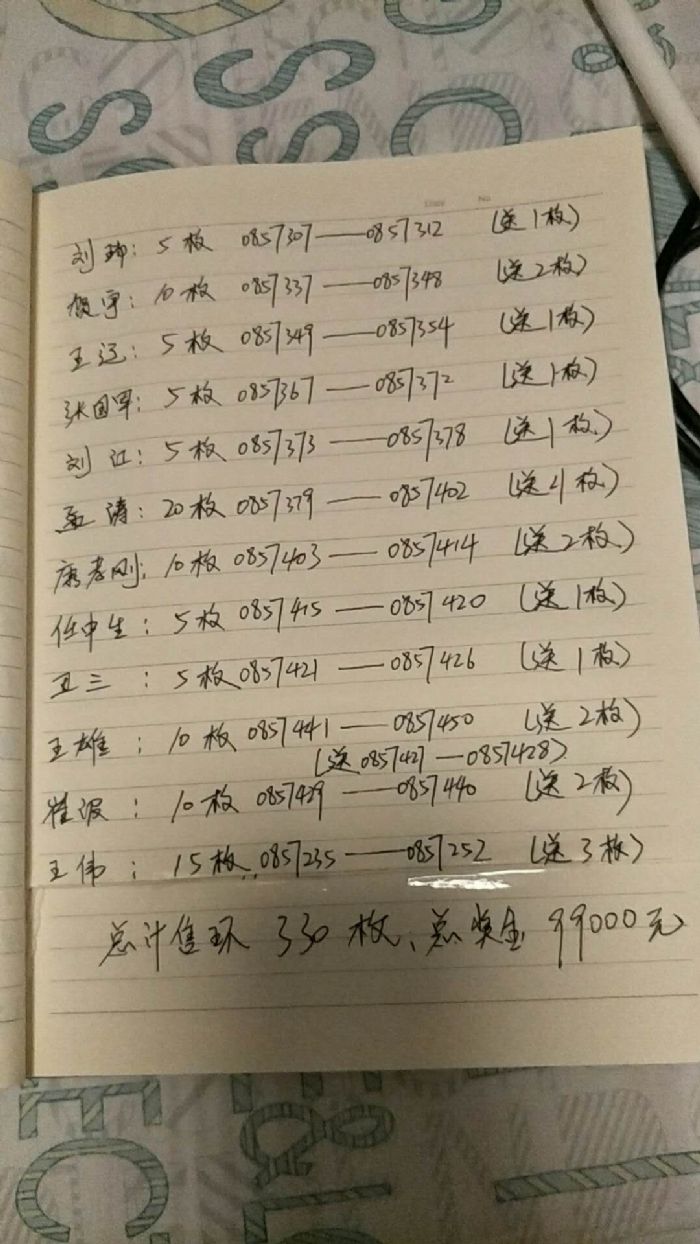 刘玮：5枚 0857307——0857312 （送1枚）
贺宇：10枚 0857337——0857348 （送2枚）
王远：5枚 0857349——0857354 （送1枚）
张国军：5枚 0857367——0857372 （送1枚）
刘江：5枚 0857373——0857378 （送1枚）
孟涛：20枚 0857379——0857402 （送4枚）
康孝刚：10枚 0857403——0857414 （送2枚）
任中生：5枚 0857415——0857420 （送1枚）
王三：5枚 0857421——0857426 （送1枚）
王雄：10枚 0857441——0857450 （送2枚）
（送0857427—0857428）
崔波：10枚 0857429——0857440 （送2枚）
王伟：15枚 0857235——0857252 （送3枚）
总计售环 330枚、总奖金 99000元